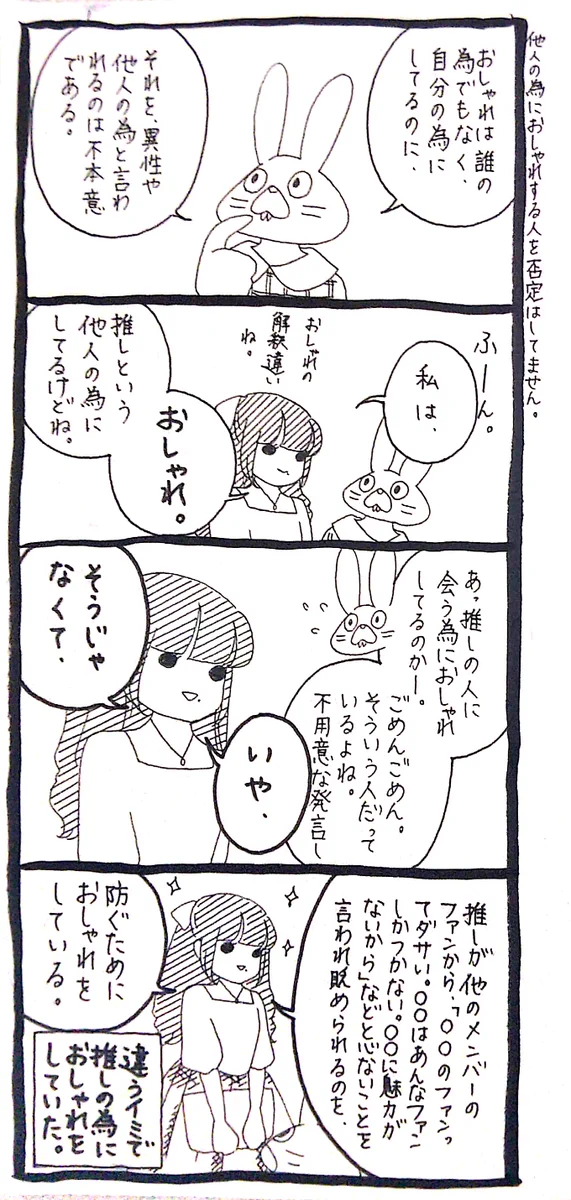 他人の為におしゃれする人を否定はしてません。
おしゃれは誰の
為でもなく、
自分の為に
してるのに、
それを、異性や
他人の為と言わ
れるのは不本意
である。
ふーん。
私は、
おしゃれの
解釈違い
ね。
おしゃれ。
推しという
他人の為に
してるけどね。
あっ推しの人に
会う為におしゃれ
してるのかー。
ごめんごめん。
そういう人だって
いるよね。
不用意な発言し
いや、
そうじゃ
なくて、
推しが他のメンバーの
ファンから、「〇〇のファンっ
てダサい。〇〇はあんなファン
しかつかない。〇〇に魅力が
ないから」などと心ないことを
言われ貶められるのを、
防ぐために
おしゃれを
している。
違うイミで
推しの為に
おしゃれを
していた。